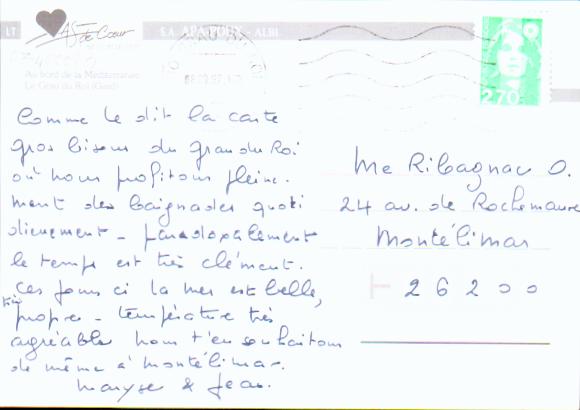 LT
AS de Cœur
S.A. APA-POUX - ALBI
Au bord de la Méditerranée
Le Grau du Roi (Gard)
2,70
Comme le dit la carte
gros bisous du Grau du Roi
où nous profitons pleine-
ment des baignades quoti
diennement - paradoxalement
le temps est très clément.
Ces jours ci la mer est belle,
très propre - température très
agréable nous t'en souhaitons
de même à Montélimar.
Maryse & Jean.
Me Ribagnac O.
24 av. de Rochemaure
Montélimar
26200